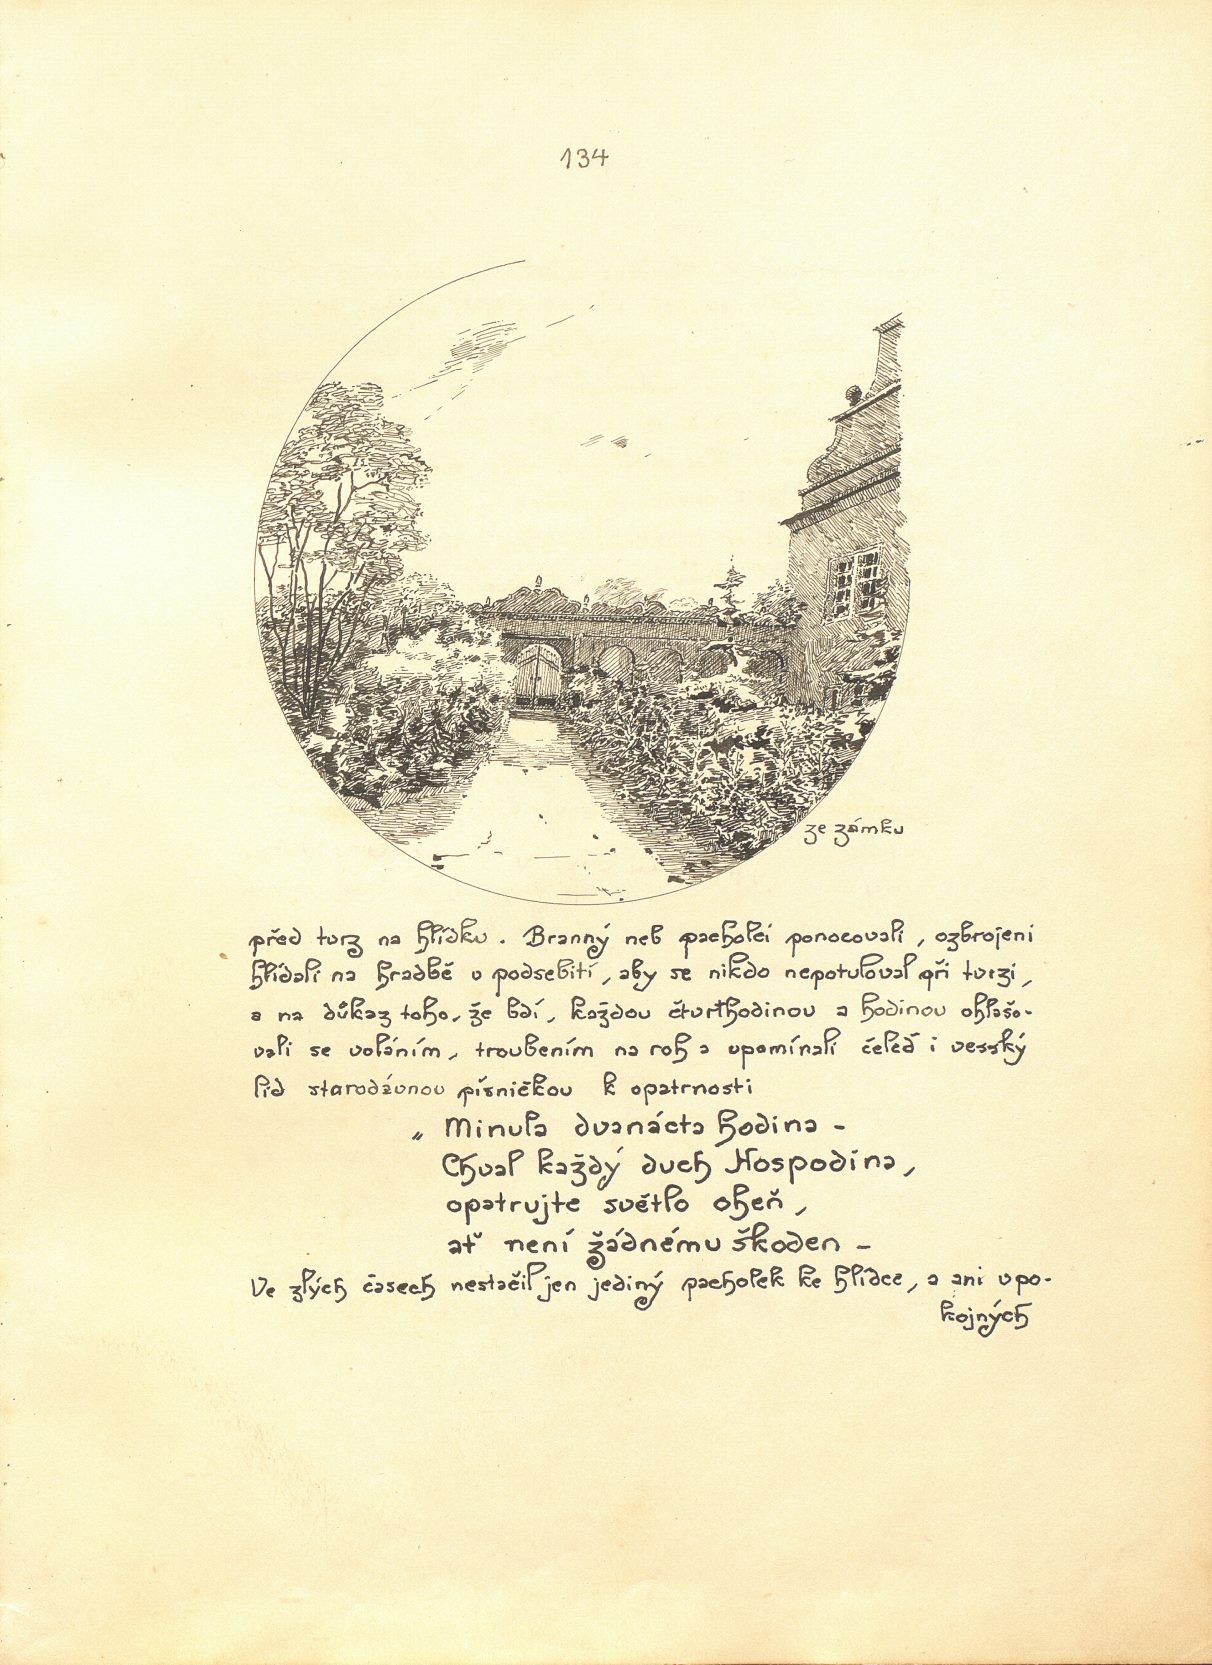 134
ze zámku
před tvrz na hlídku. Branný neb pacholci ponocovali, ozbrojeni
hlídali na hradbě v podsebití, aby se nikdo nepotuloval při tvrzi,
a na důkaz toho, že bdí, každou čtvrthodinou a hodinou ohlašo-
vali se voláním, troubením na roh a upomínali čeleď i vesský
lid starodávnou písničkou k opatrnosti
„Minula dvanácta hodina -
Chval každý duch Hospodina,
opatrujte světlo oheň,
ať není žádnému škoden -
Ve zlých časech nestačil jen jediný pacholek ke hlídce, a ani upo-
kojných